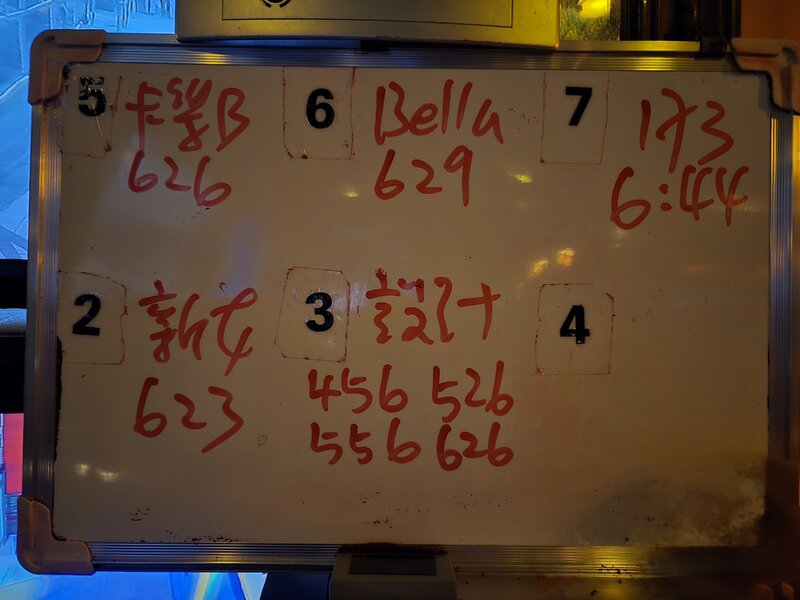 5
卡蹓B
626
6
Bella
629
7
173
6:44
2
新
623
3
456 526
556 626
4